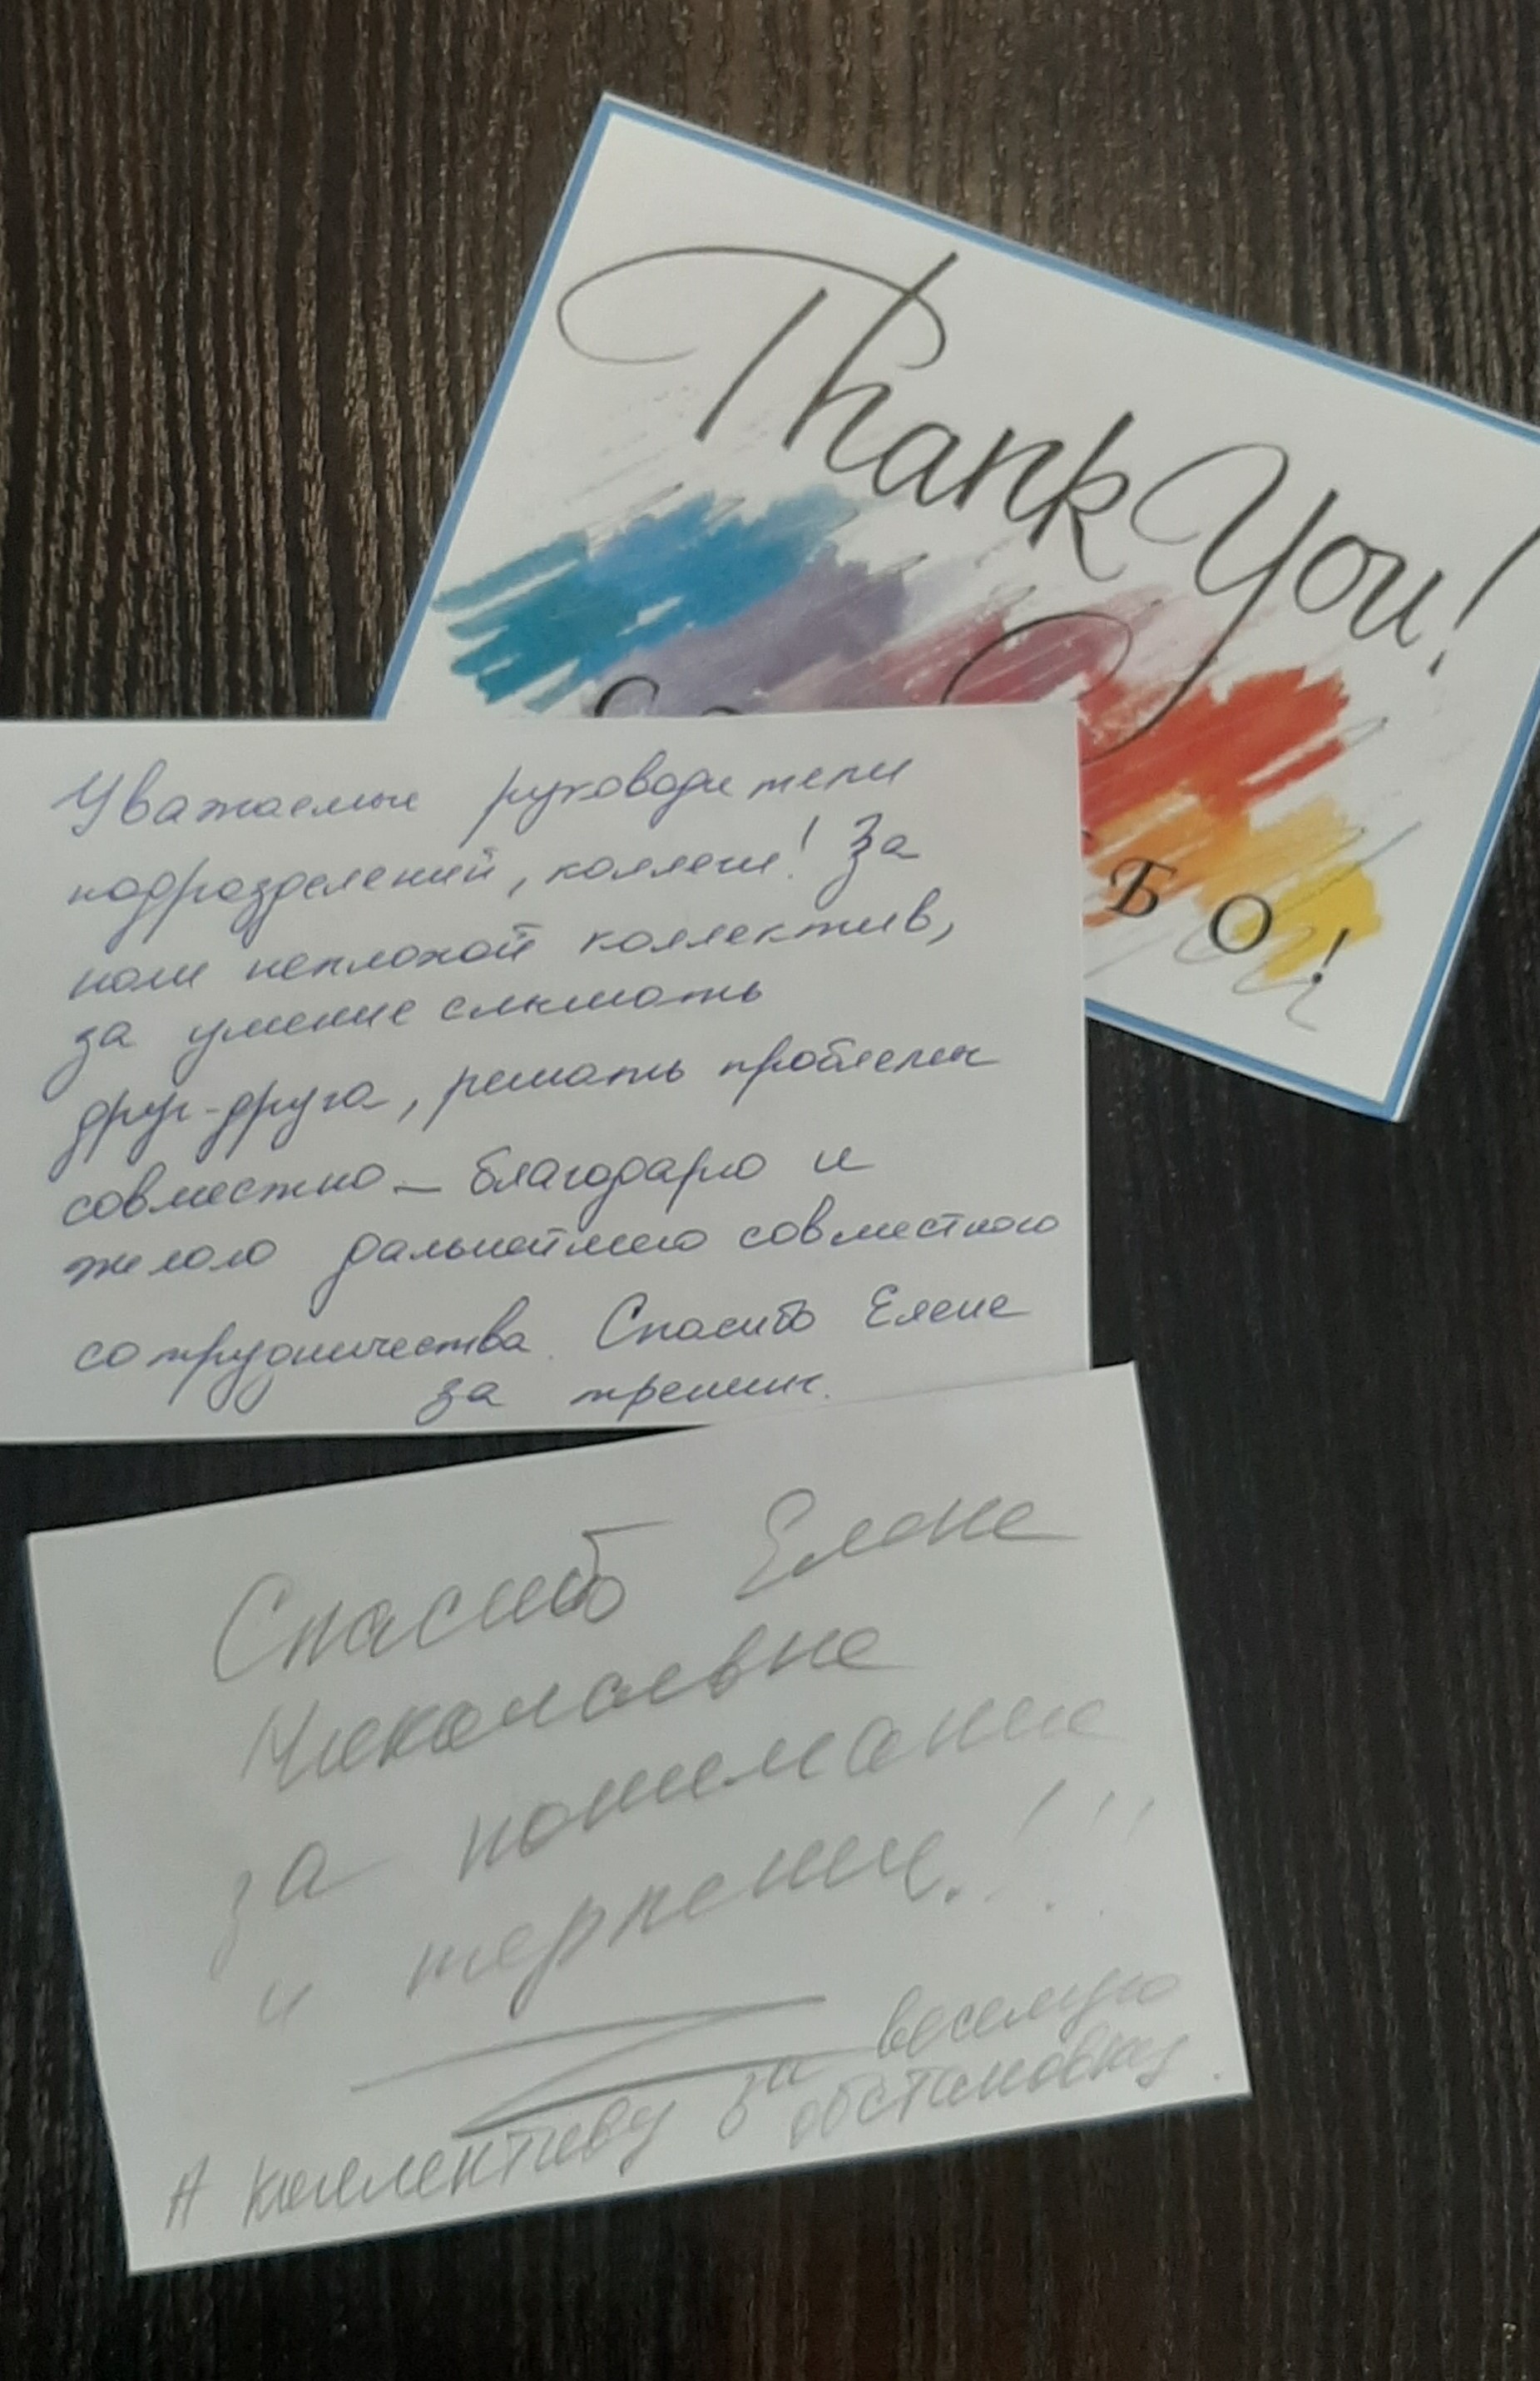 Thank You!
БО!
Уважаемые руководители
подразделений, коллеги! За
наш неплохой коллектив,
за умение слышать
друг-друга, решать проблемы
совместно – благодарю и
желаю дальнейшего совместного
сотрудничества. Спасибо Елене
за тренинг.
Спасибо Елене
Николаевне
за понимание
и терпение!!!
А коллективу за веселую
обстановку.